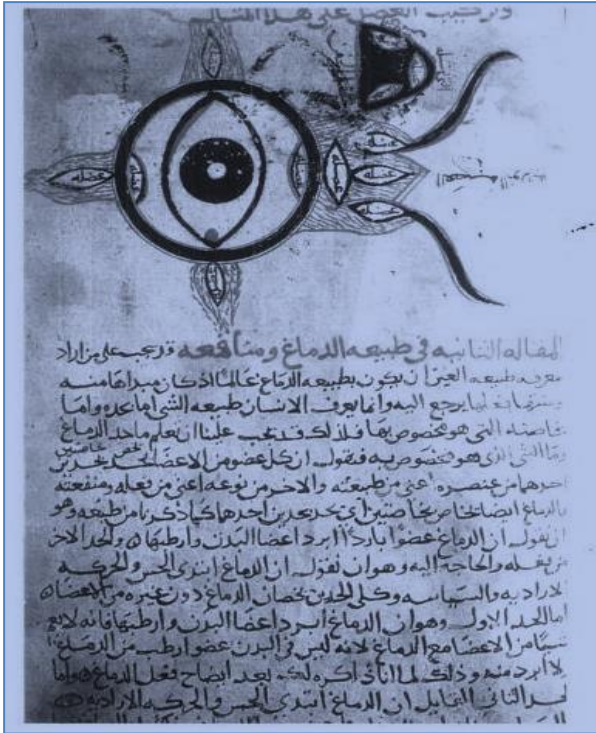 وتركيب العضل على هذا المثال
عضله
عضله
عضله
عضله
عضله
المقاله الثانيه فى طبيعه الدماغ ومنافعه قد يجب على من اراد
معرفه طبيعه العين ان يكون بطبيعه الدماغ عالما اذ كان مبداها منه
يرجع اليه وانما يعرف الانسان طبيعه الشى اما بحده واما
بخاصته التى هو مخصوص بها فلذلك قد يجب علينا ان نعلم ما حد الدماغ
وما الشى الذى هو مخصوص به فنقول ان كل عضو من الاعضا يحد بحدين
احدهما من عنصره اعنى من طبيعته والاخر من نوعه اعنى من فعله ومنفعته
فالدماغ ايضا بحدين احدهما كما ذكرنا من طبيعه وهو
ان نقول ان الدماغ عضو بارد ابرد اعضا البدن وارطبها والحد الاخر
من فعله والحاجه اليه وهو ان نقول ان الدماغ ابتدى الحس والحركه
الاراديه والسياسه وكلى الحدين يخصان الدماغ دون غيره من الاعضا
اما الحد الاول وهو ان الدماغ ابرد اعضا البدن وارطبها فانه لا يعم
شيا من الاعضا مع الدماغ لانه ليس فى البدن عضو ارطب من الدماغ
ولا ابرد منه وذلك لما انا ذاكره لك بعد ايضاح فعل الدماغ واما
الحد الثانى القايل ان الدماغ ابتدى الحس والحركه الاراديه